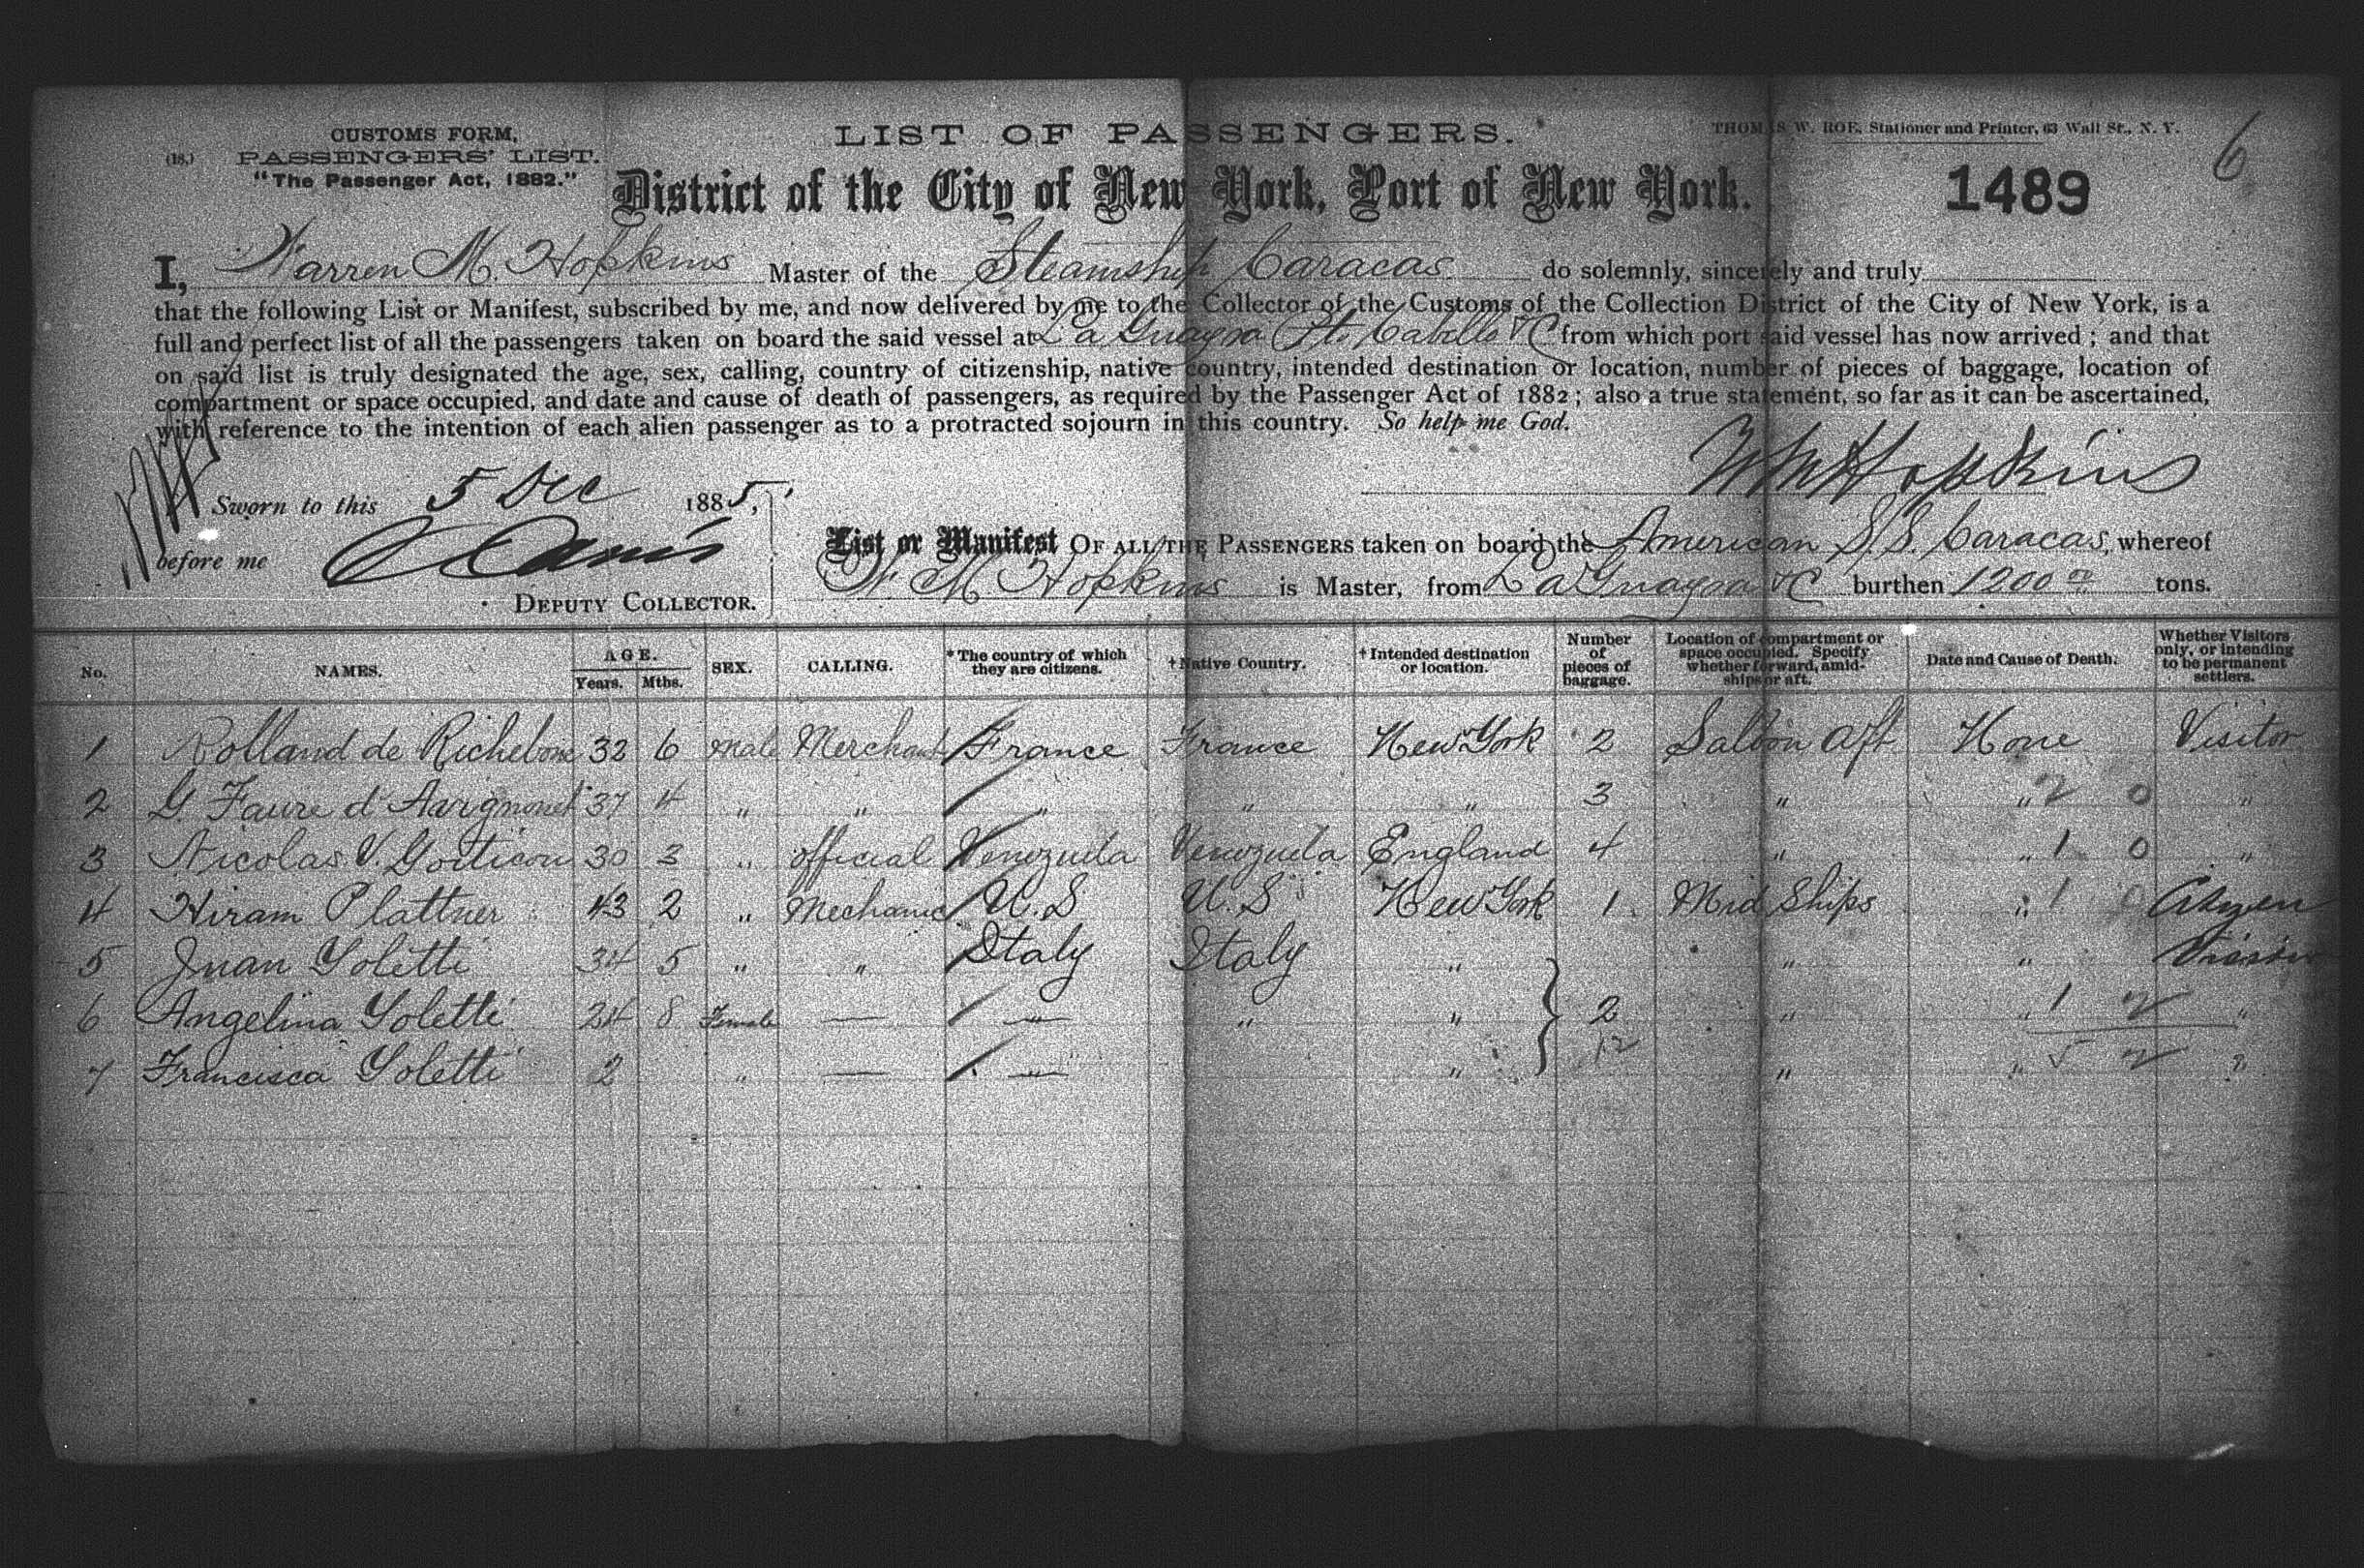 CUSTOMS FORM,
(18.) PASSENGERS' LIST.
"The Passenger Act, 1882."
LIST OF PASSENGERS.
THOMAS W. ROE, Stationer and Printer, 63 Wall St., N. Y.
6
District of the City of New York, Port of New York.
1489
I, Warren M. Hopkins Master of the Steamship Caracas do solemnly, sincerely and truly
that the following List or Manifest, subscribed by me, and now delivered by me to the Collector of the Customs of the Collection District of the City of New York, is a
full and perfect list of all the passengers taken on board the said vessel at La Guayra Pto Cabello &C from which port said vessel has now arrived; and that
on said list is truly designated the age, sex, calling, country of citizenship, native country, intended destination or location, number of pieces of baggage, location of
compartment or space occupied, and date and cause of death of passengers, as required by the Passenger Act of 1882; also a true statement, so far as it can be ascertained,
with reference to the intention of each alien passenger as to a protracted sojourn in this country. So help me God.
W M Hopkins
Sworn to this 5 Dec 1885,
before me
DEPUTY COLLECTOR.
List or Manifest OF ALL THE PASSENGERS taken on board the American S.S. Caracas, whereof
W M Hopkins is Master, from La Guayra &C burthen 1200 00 tons.
No. NAMES. AGE. Years. Mths. SEX. CALLING. *The country of which they are citizens. †Native Country. †Intended destination or location. Number of pieces of baggage. Location of compartment or space occupied. Specify whether forward, amidships or aft. Date and Cause of Death. Whether Visitors only, or intending to be permanent settlers.
1 Rolland de Richebone 32 6 male Merchant France France New York 2 Saloon Aft None Visitor
2 G. Faure d'Avrigmonet 37 4 " " " " " 3 " " 2 0 "
3 Nicolas V. Goiticon 30 3 " official Venezuela Venezuela England 4 " " 1 0 "
4 Hiram Plattner 43 2 " Mechanic U.S U.S New York 1 Mid Ships " 1 0 Citizen
5 Juan Soletti 34 5 " " Italy Italy " " " Visitor
6 Angelina Soletti 24 8 Female — " " " 2 " " 1 2 "
7 Francisca Soletti 2 " — " " 12 " " 5 2 "